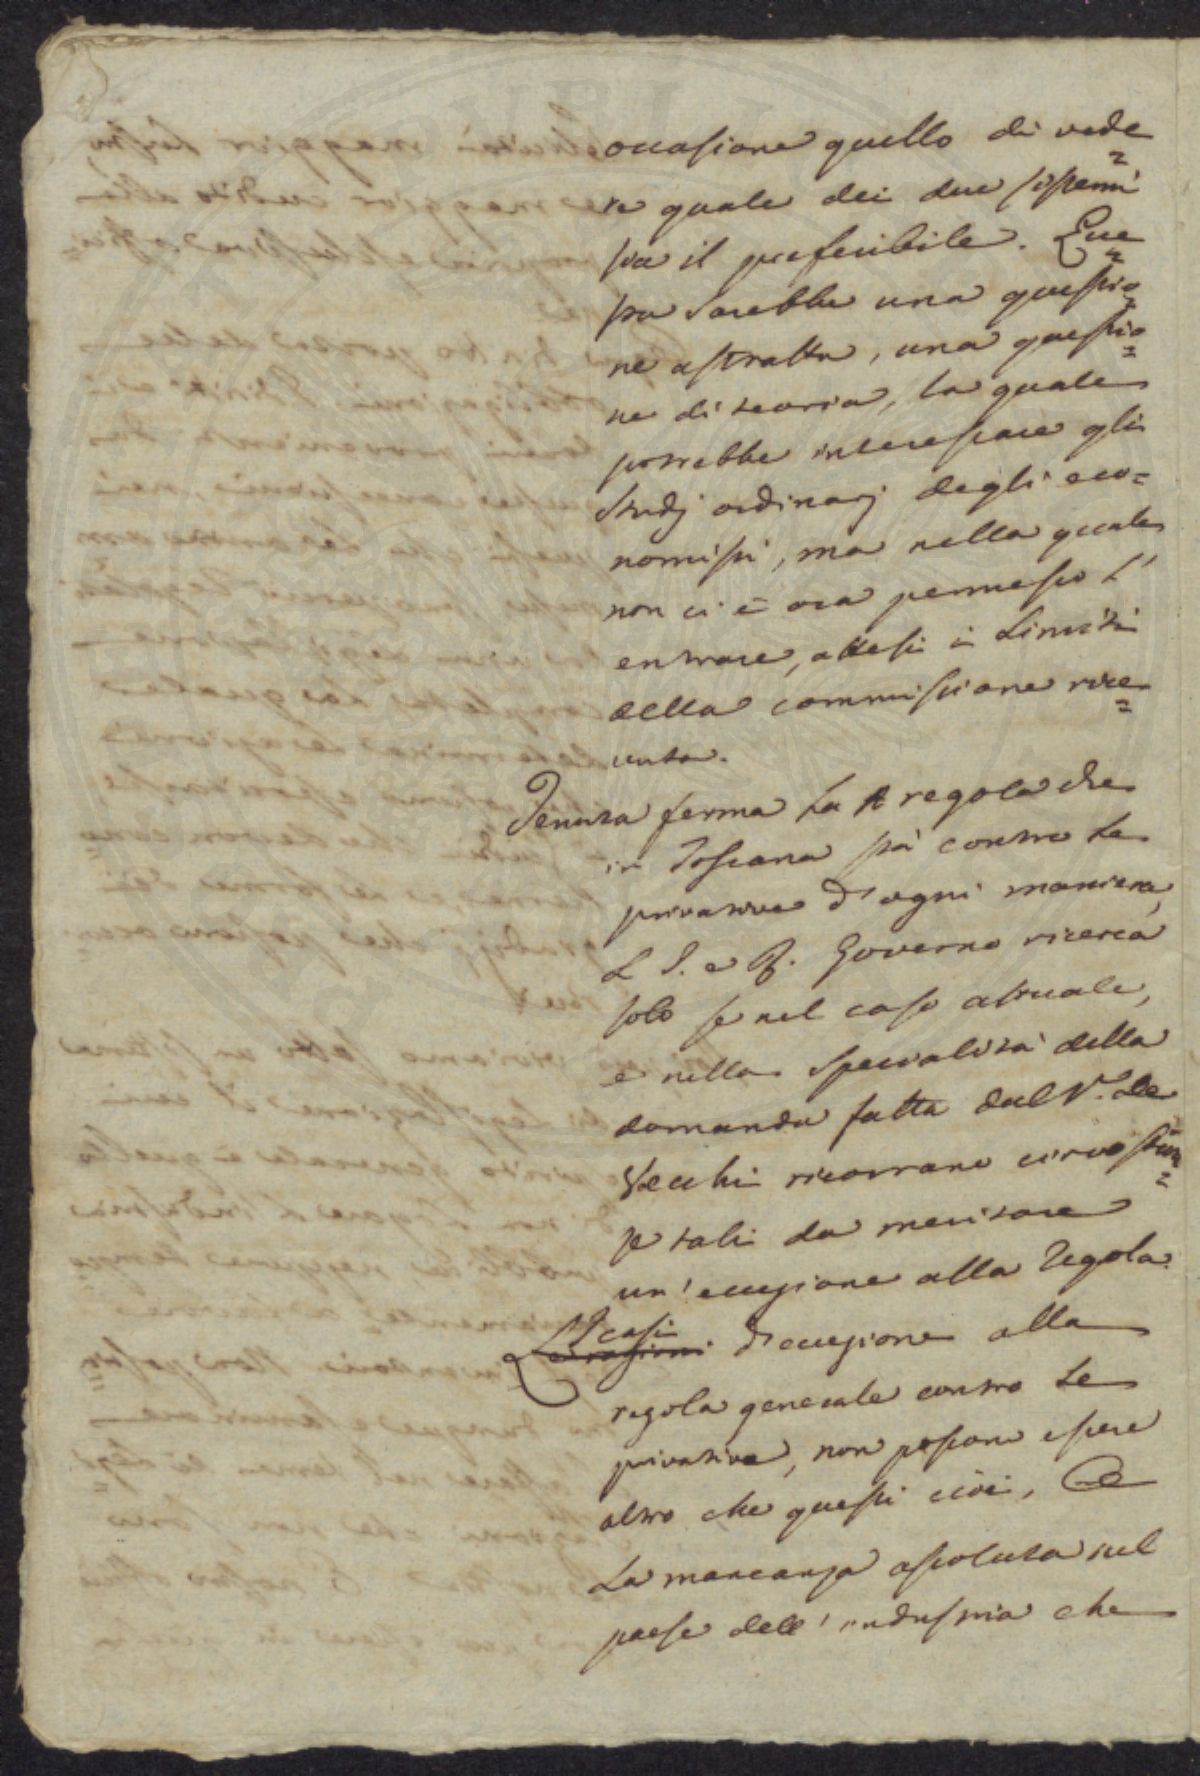 occasione quello di vede=
re quale dei due sistemi
sia il preferibile. Que=
sta sarebbe una questio=
ne astratta, una questio=
ne di teoria, la quale
potrebbe interessare gli
studj ordinarj degli eco=
nomisti, ma nella quale
non ci è ora permesso l'
entrare, attesi i limiti
della commissione rice=
vuta.
Tenuta ferma la regola che
in Toscana sta contro le
privative d'ogni maniera,
L I. e R. Governo ricerca
solo se nel caso attuale,
e nella specialità della
domanda fatta dal S.r De
Vecchi ricorrano circostan=
ze tali da meritare
un'eccezione alla regola.
I casi
Le ragioni d'eccezione alla
regola generale contro le
privative, non possono essere
altro che questi cioè,
La mancanza assoluta nel
paese dell'industria che